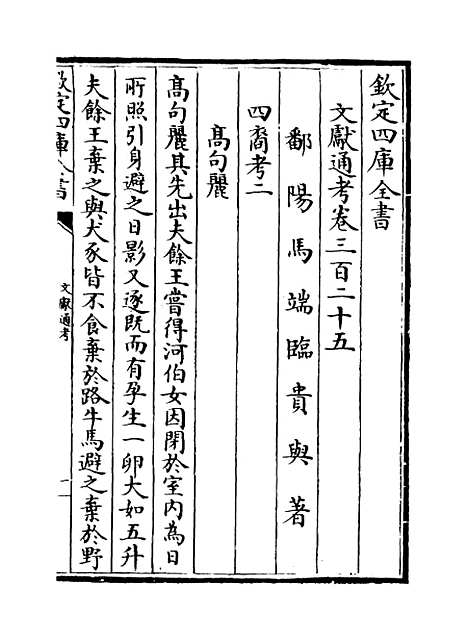 欽定四庫全書
文獻通考卷三百二十五
鄱陽馬端臨貴與著
四裔考二
高句麗
高句麗其先出夫餘王嘗得河伯女因閉於室内為日
所照引身避之日影又逐既而有孕生一卵大如五升
夫餘王棄之與犬豕皆不食棄於路牛馬避之棄於野
欽定四庫全書
文獻通考
一